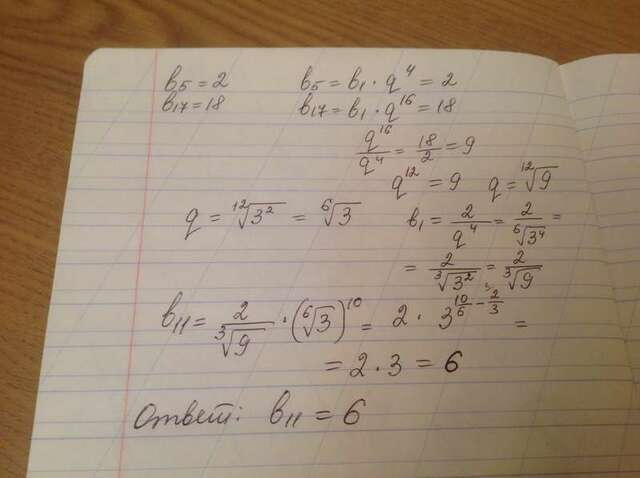 b₅ = 2 b₅ = b₁ · q⁴ = 2
b₁₇ = 18 b₁₇ = b₁ · q¹⁶ = 18
q¹⁶/q⁴ = 18/2 = 9
q¹² = 9 q = ¹²√9
q = ¹²√3² = ⁶√3 b₁ = 2/q⁴ = 2/⁶√3⁴ =
= 2/³√3² = 2/³√9
b₁₁ = 2/³√9 · (⁶√3)¹⁰ = 2 · 3^(10/6 − 2/3) =
= 2 · 3 = 6
Ответ: b₁₁ = 6